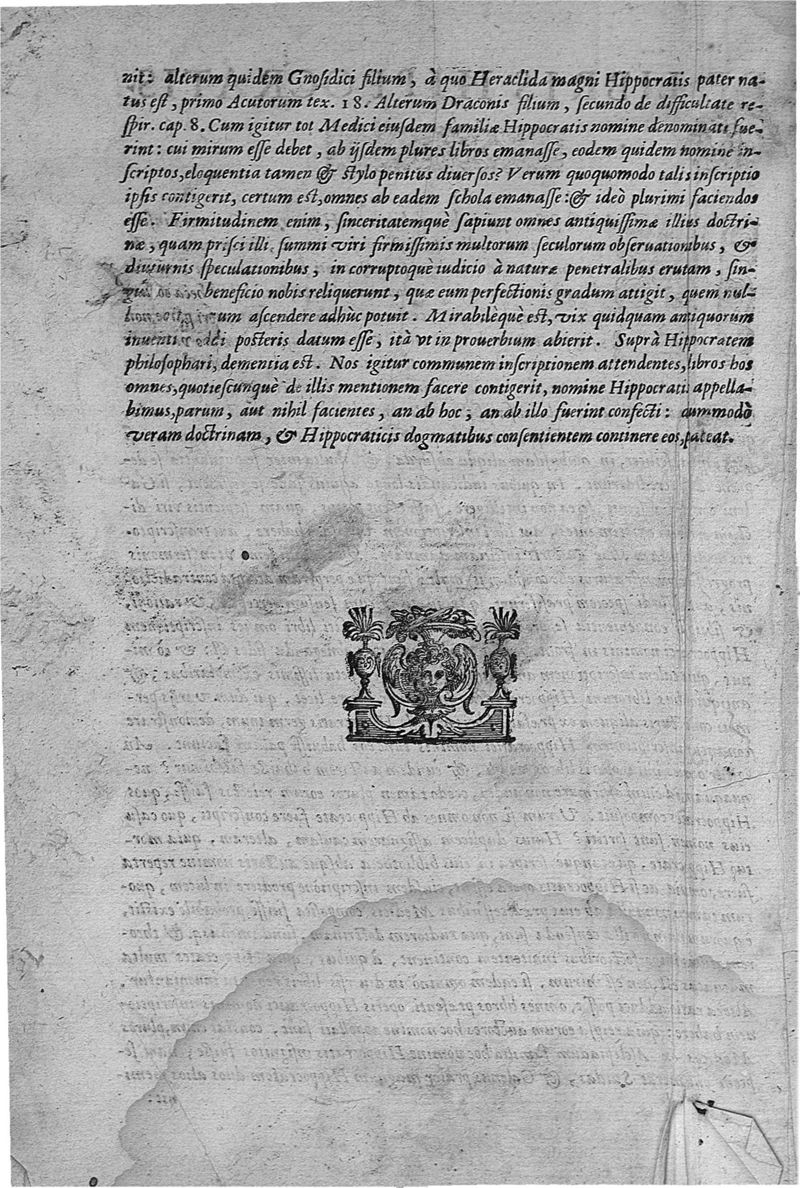 nit: alterum quidem Gnosidici filium, à quo Heraclida magni Hippocratis pater na-
tus est, primo Acutorum tex. 18. Alterum Draconis filium, secundo de difficultate re-
spir. cap. 8. Cum igitur tot Medici eiusdem familiæ Hippocratis nomine denominati fue-
rint: cui mirum esse debet, ab ijsdem plures libros emanasse, eodem quidem nomine in-
scriptos, eloquentia tamen & stylo penitus diuersos? Verum quoquomodo talis inscriptio
ipsis contigerit, certum est, omnes ab eadem schola emanasse: & ideò plurimi faciendos
esse. Firmitudinem enim, sinceritatemquè sapiunt omnes antiquissimæ illius doctri-
næ, quam prisci illi summi viri firmissimis multorum seculorum obseruationibus, &
diuturnis speculationibus, in corruptoquè iudicio à naturæ penetralibus erutam, sin-
beneficio nobis reliquerunt, quæ eum perfectionis gradum attigit, quem nul-
um ascendere adhùc potuit. Mirabilèquè est, vix quidquam antiquorum
inuentis addi posteris datum esse, ità vt in prouerbium abierit. Suprà Hippocratem
philosophari, dementia est. Nos igitur communem inscriptionem attendentes, libros hos
omnes, quotiescunquè de illis mentionem facere contigerit, nomine Hippocratis appella-
bimus, parum, aut nihil facientes, an ab hoc, an ab illo fuerint confecti: dummodò
veram doctrinam, & Hippocraticis dogmatibus consentientem continere eos, pateat.